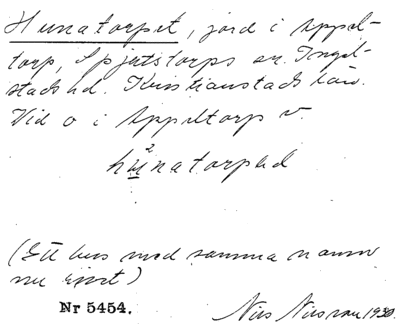 Hunatorpet, jord i Äppel-
torp, Spjutstorps sn. Ingel-
stads hd. Kristianstads län.
Vid o i Äppeltorp v.
hu²natorped
(Ett hus med samma namn
nu öjort)
Nr 5454.
Nils Nilsson 1930.